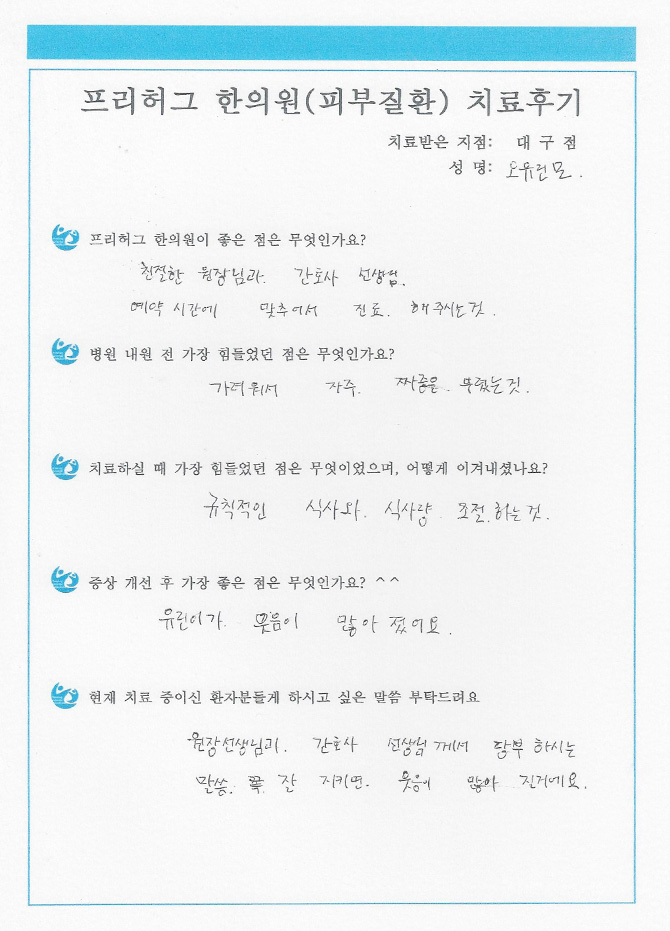 프리허그 한의원(피부질환) 치료후기
치료받은 지점: 대구점
성 명: 오유린 모.
프리허그 한의원이 좋은 점은 무엇인가요?
친절한 원장님과. 간호사 선생님.
예약 시간에 맞추어서 진료. 해주시는것.
병원 내원 전 가장 힘들었던 점은 무엇인가요?
가려워서 자주. 짜증을 부렸는것.
치료하실 때 가장 힘들었던 점은 무엇이었으며, 어떻게 이겨내셨나요?
규칙적인 식사와. 식사량. 조절.하는것.
증상 개선 후 가장 좋은 점은 무엇인가요? ^^
유린이가. 웃음이 많아 졌어요.
현재 치료 중이신 환자분들게 하시고 싶은 말씀 부탁드려요
원장선생님과. 간호사 선생님께서 당부 하시는
말씀. 꼭 잘 지키면. 웃음이 많아 진거네요.